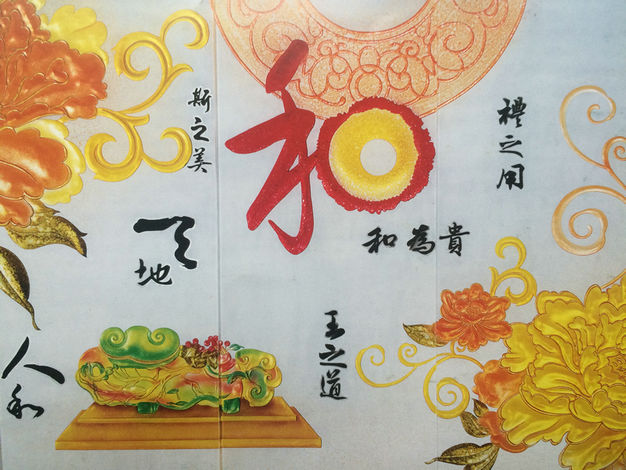 和
禮之用
和為貴
王之道
斯之美
天
地
人和